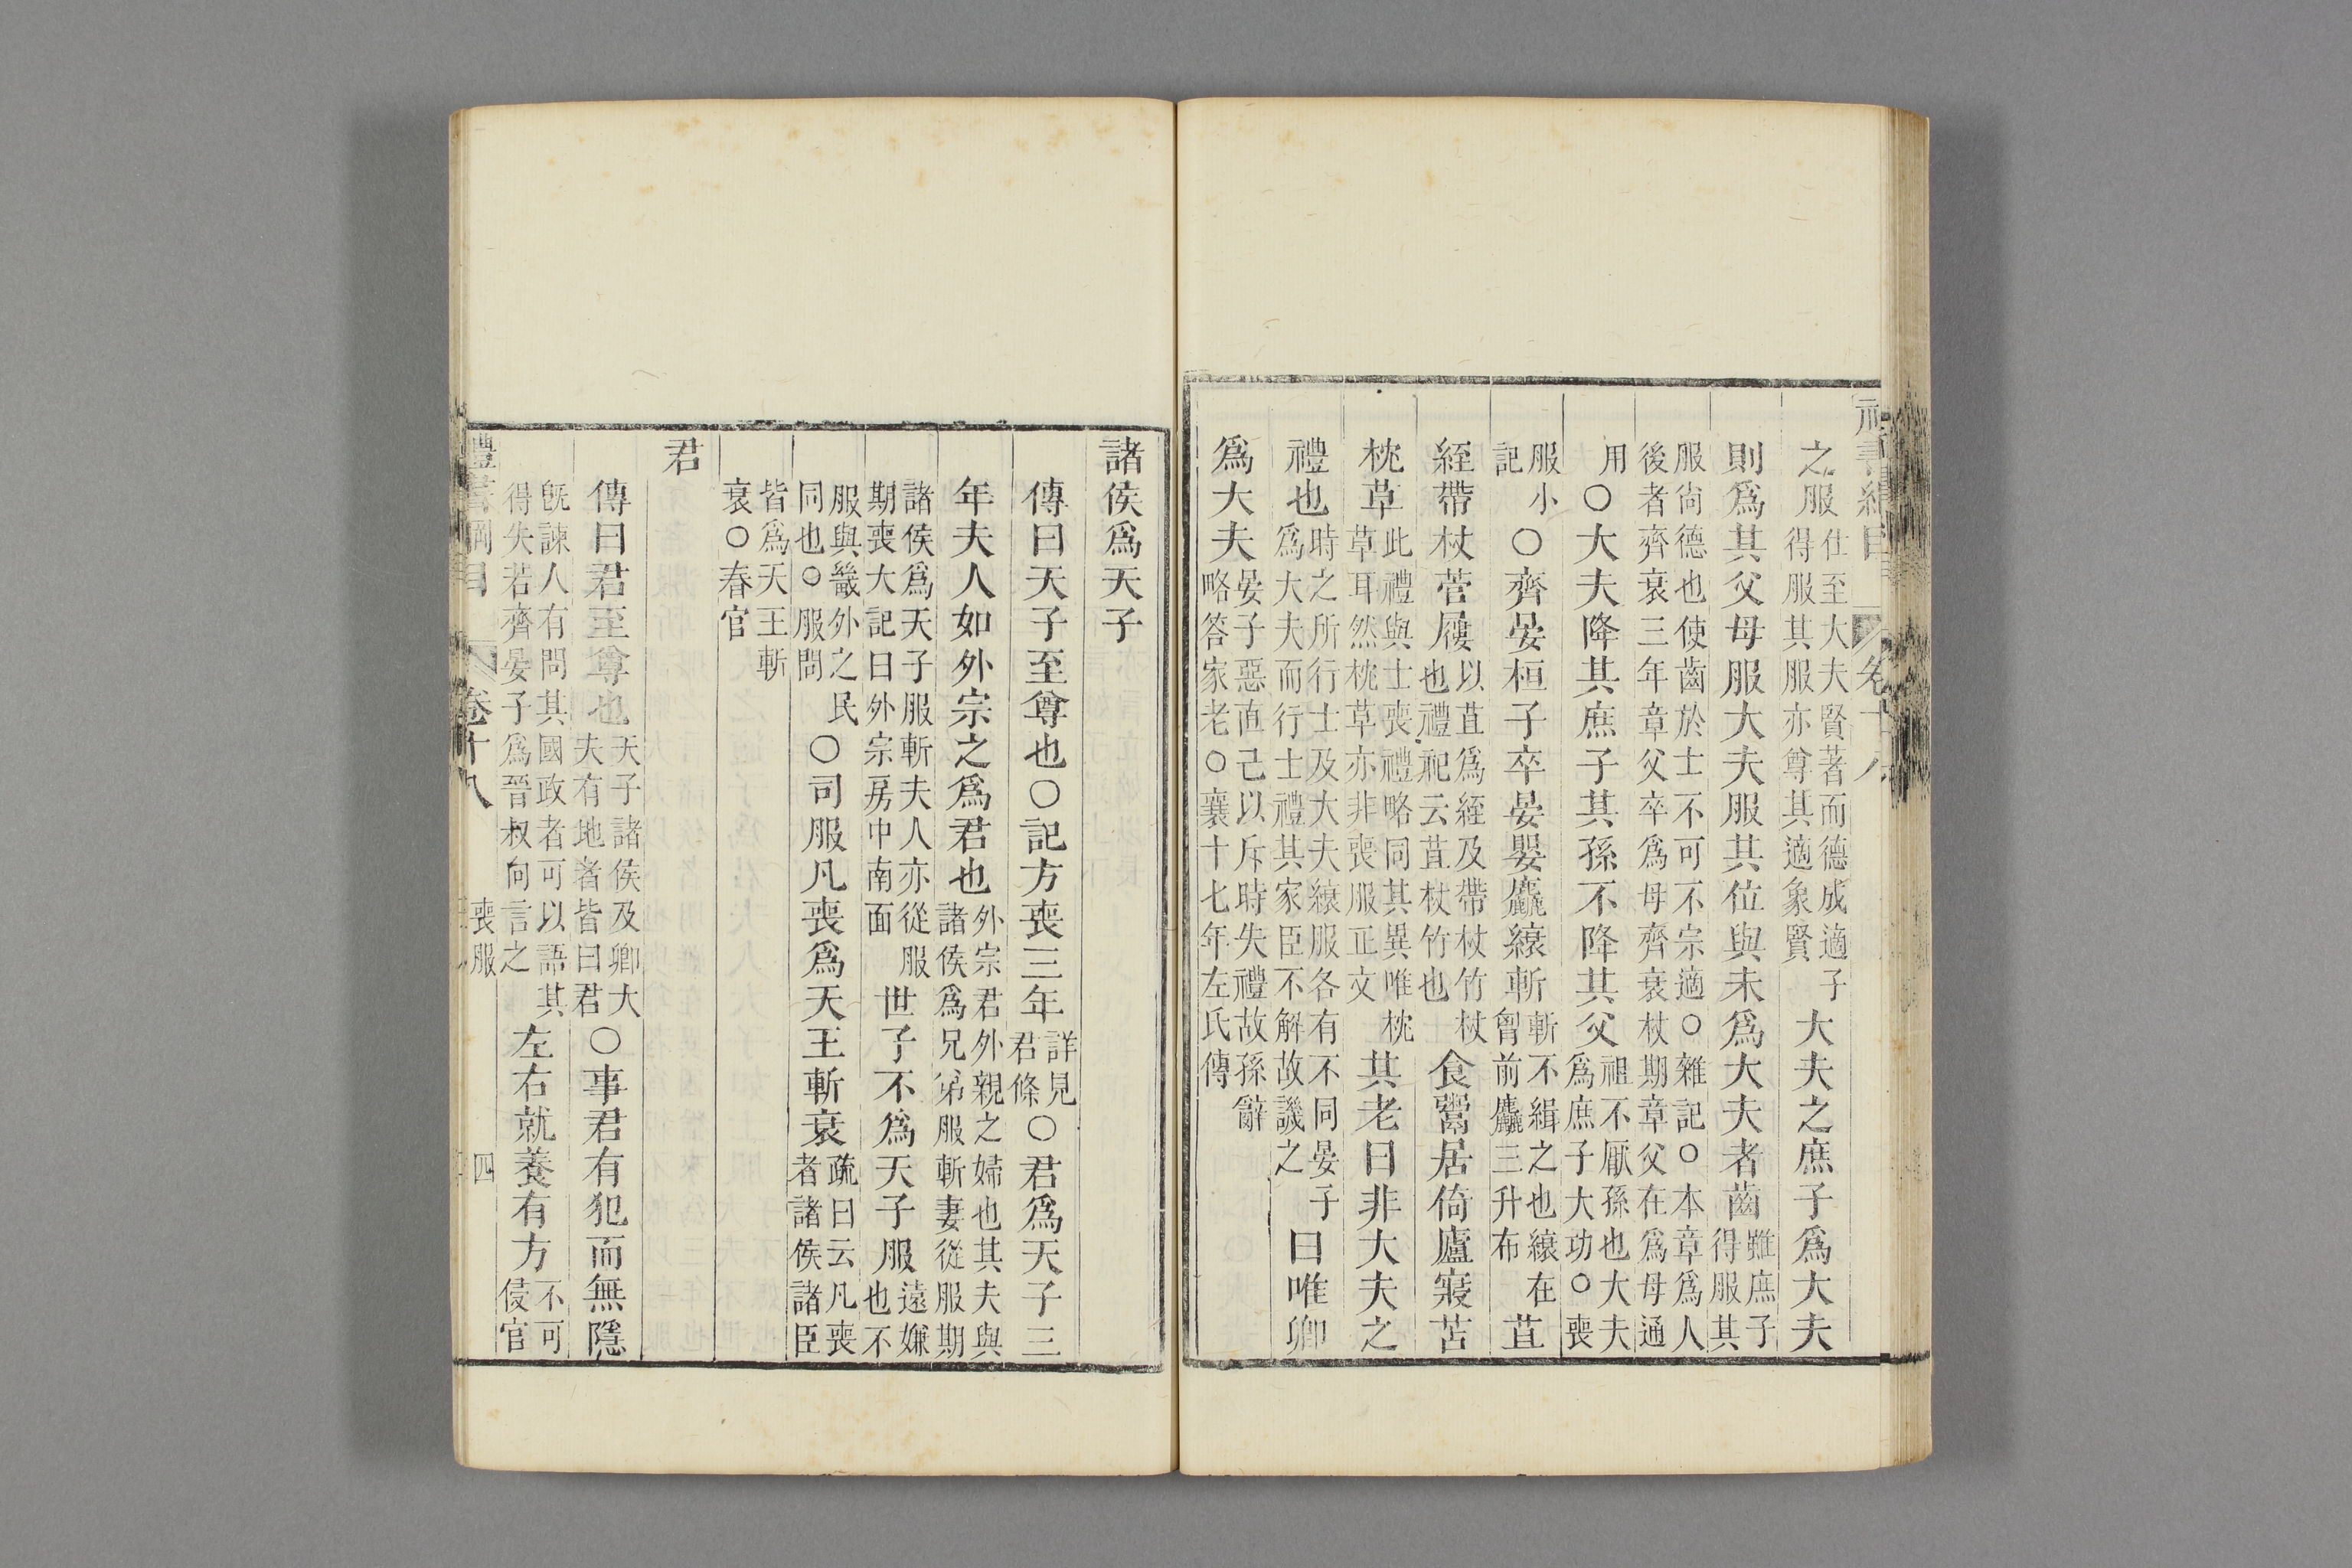 禮書綱目 卷十八
之服仕至大夫賢著而德成適子得服其服亦尊其適象賢大夫之庶子爲大夫
則爲其父母服大夫服其位與未爲大夫者齒雖庶子得服其
服尙德也使齒於士不可不宗適○雜記○本章爲人後者齊衰三年章父卒爲母齊衰杖期章父在爲母通
用○大夫降其庶子其孫不降其父祖不厭孫也大夫爲庶子大功○喪
服小記○齊晏桓子卒晏嬰麤縗斬斬不緝之也縗在胷前麤三升布苴
絰帶杖菅屨以苴爲絰及帶杖竹杖也禮記云苴杖竹也食鬻居倚廬寢苫
枕草此禮與士喪禮略同其異唯枕草耳然枕草亦非喪服正文其老曰非大夫之
禮也時之所行士及大夫縗服各有不同晏子爲大夫而行士禮其家臣不解故譏之曰唯卿
爲大夫晏子惡直己以斥時失禮故孫辭略答家老○襄十七年左氏傳
諸侯爲天子
傳曰天子至尊也○記方喪三年詳見君條○君爲天子三
年夫人如外宗之爲君也外宗君外親之婦也其夫與諸侯爲兄弟服斬妻從服期
諸侯爲天子服斬夫人亦從服期喪大記曰外宗房中南面世子不爲天子服遠嫌也不
服與畿外之民同也○服問○司服凡喪爲天王斬衰疏曰云凡喪者諸侯諸臣
皆爲天王斬衰○春官
君
傳曰君至尊也天子諸侯及卿大夫有地者皆曰君○事君有犯而無隱
旣諫人有問其國政者可以語其得失若齊晏子爲晉叔向言之左右就養有方不可侵官
禮書綱目 卷十八 喪服 四